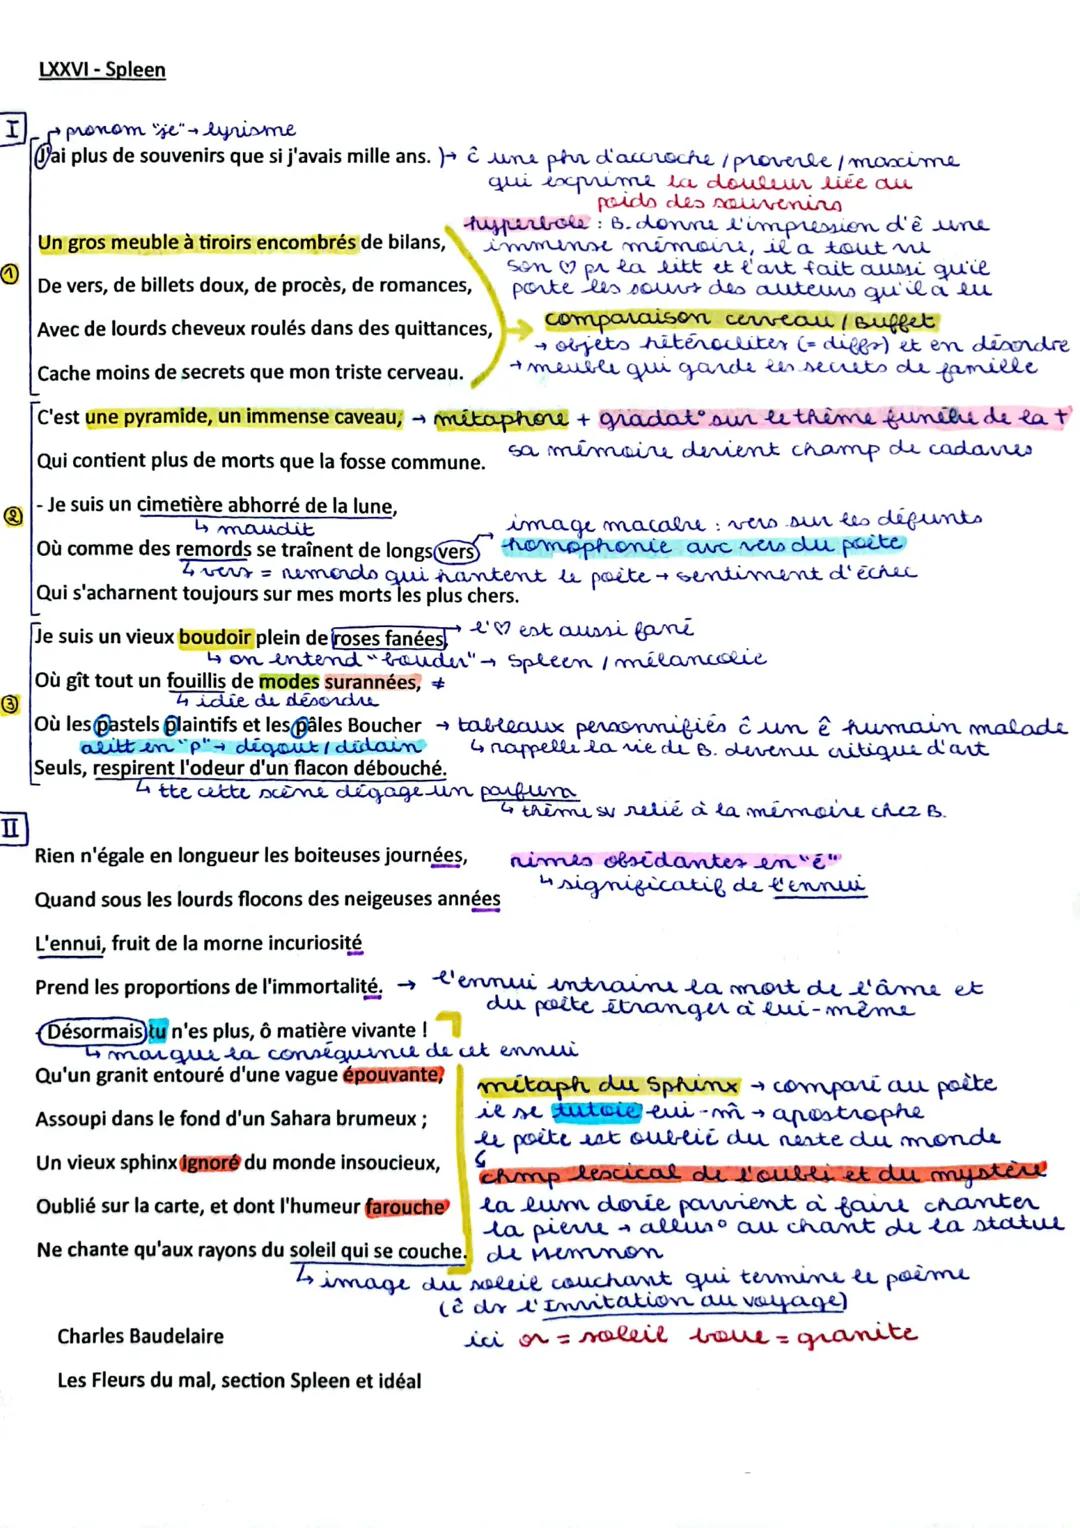 LXXVI - Spleen
I
→ pronom "je" → lyrisme
J'ai plus de souvenirs que si j'avais mille ans. }→ ĉ une phr d'accroche / proverbe / maxime
qui exprime la douleur liée au
poids des souvenirs
hyperbole : B. donne l'impression d'ê une
Un gros meuble à tiroirs encombrés de bilans, immense mémoire, il a tout vu
① son ♡ pr la litt et l'art fait aussi qu'il
De vers, de billets doux, de procès, de romances, porte les souvs des auteurs qu'il a lu
Avec de lourds cheveux roulés dans des quittances, comparaison cerveau / Buffet
→ objets hétéroclites (= diffs) et en désordre
Cache moins de secrets que mon triste cerveau. → meuble qui garde les secrets de famille
C'est une pyramide, un immense caveau, → métaphore + gradat° sur le thème funèbre de la †
Qui contient plus de morts que la fosse commune. sa mémoire devient champ de cadavres
② - Je suis un cimetière abhorré de la lune,
↳ maudit image macabre : vers sur les défunts
Où comme des remords se traînent de longs vers homophonie avc vers du poète
↳ vers = remords qui hantent le poète → sentiment d'échec
Qui s'acharnent toujours sur mes morts les plus chers.
Je suis un vieux boudoir plein de roses fanées, → l'♡ est aussi fané
↳ on entend "bouder" → Spleen / mélancolie
Où gît tout un fouillis de modes surannées, ≠
③ ↳ idée de désordre
Où les pastels plaintifs et les pâles Boucher → tableaux personnifiés ĉ un ê humain malade
allit en "p" → dégout / dédain ↳ rappelle la vie de B. devenu critique d'art
Seuls, respirent l'odeur d'un flacon débouché.
↳ tte cette scène dégage un parfum
↳ thème sv relié à la mémoire chez B.
II
Rien n'égale en longueur les boiteuses journées, rimes obsédantes en "é"
↳ significatif de l'ennui
Quand sous les lourds flocons des neigeuses années
L'ennui, fruit de la morne incuriosité
Prend les proportions de l'immortalité. → l'ennui entraine la mort de l'âme et
du poète étranger à lui-même
Désormais tu n'es plus, ô matière vivante !
↳ marque la conséquence de cet ennui
Qu'un granit entouré d'une vague épouvante, métaph du Sphinx → comparé au poète
Assoupi dans le fond d'un Sahara brumeux ; il se tutoie lui-m̂ → apostrophe
le poète est oublié du reste du monde
Un vieux sphinx ignoré du monde insoucieux, ↳ chmp lexical de l'oubli et du mystère
Oublié sur la carte, et dont l'humeur farouche la lum dorée parvient à faire chanter
la pierre → allus° au chant de la statue
Ne chante qu'aux rayons du soleil qui se couche. de Memnon
↳ image du soleil couchant qui termine le poème
(ĉ ds l'Invitation au voyage)
Charles Baudelaire ici or = soleil boue = granite
Les Fleurs du mal, section Spleen et idéal